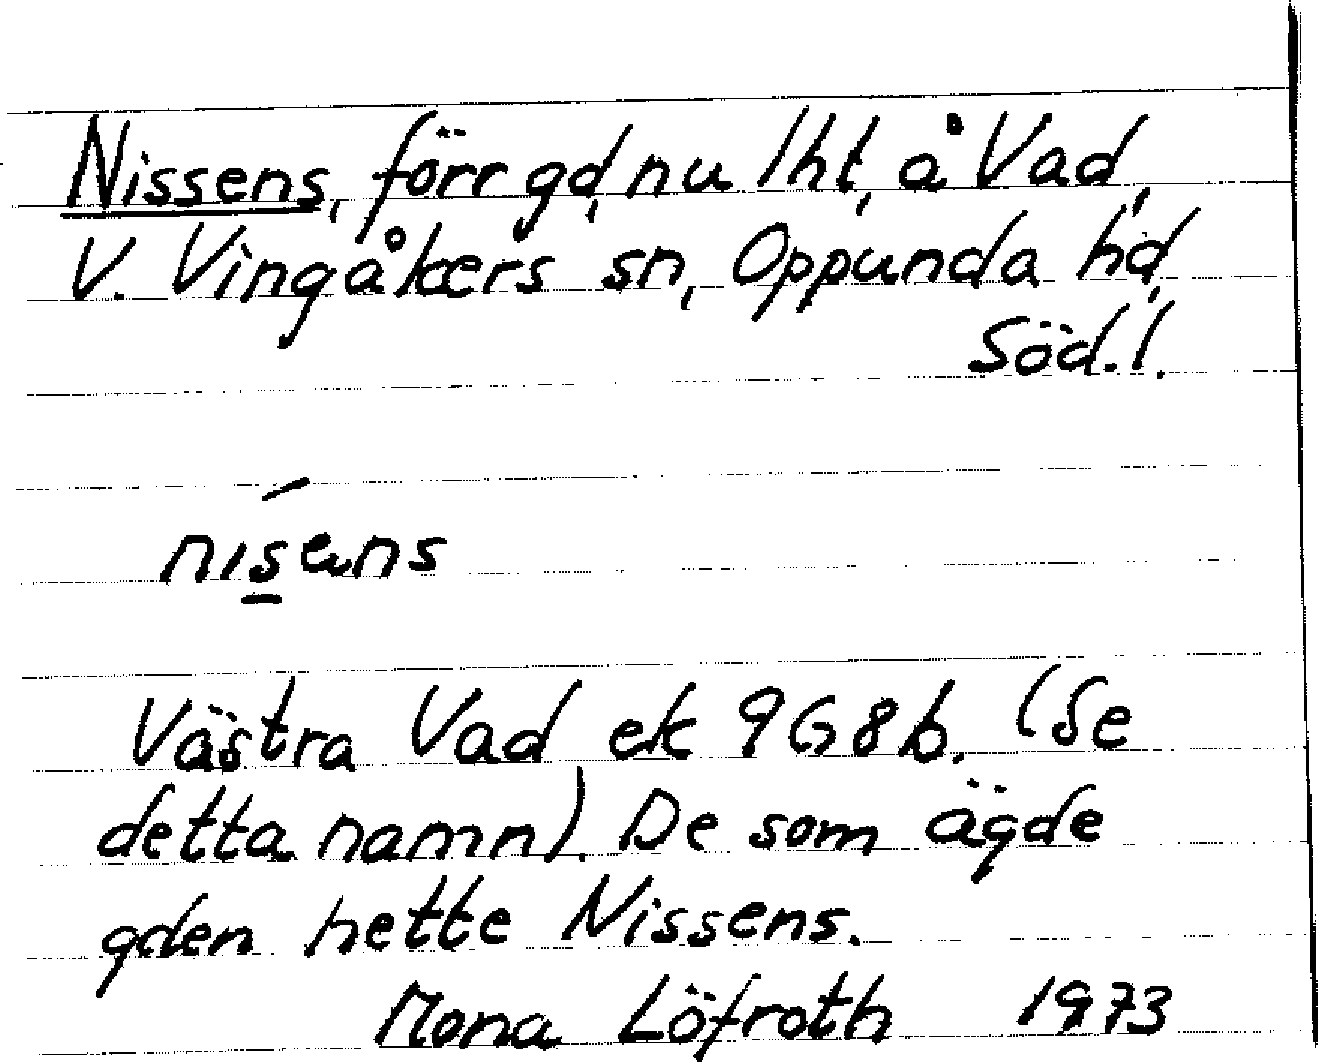 Nissens, förr gd, nu lht, å Vad,
V. Vingåkers sn, Oppunda hd,
Söd. l.
nisens
Västra Vad ek 9G8b. (Se
detta namn). De som ägde
gden hette Nissens.
Mona Löfroth 1973